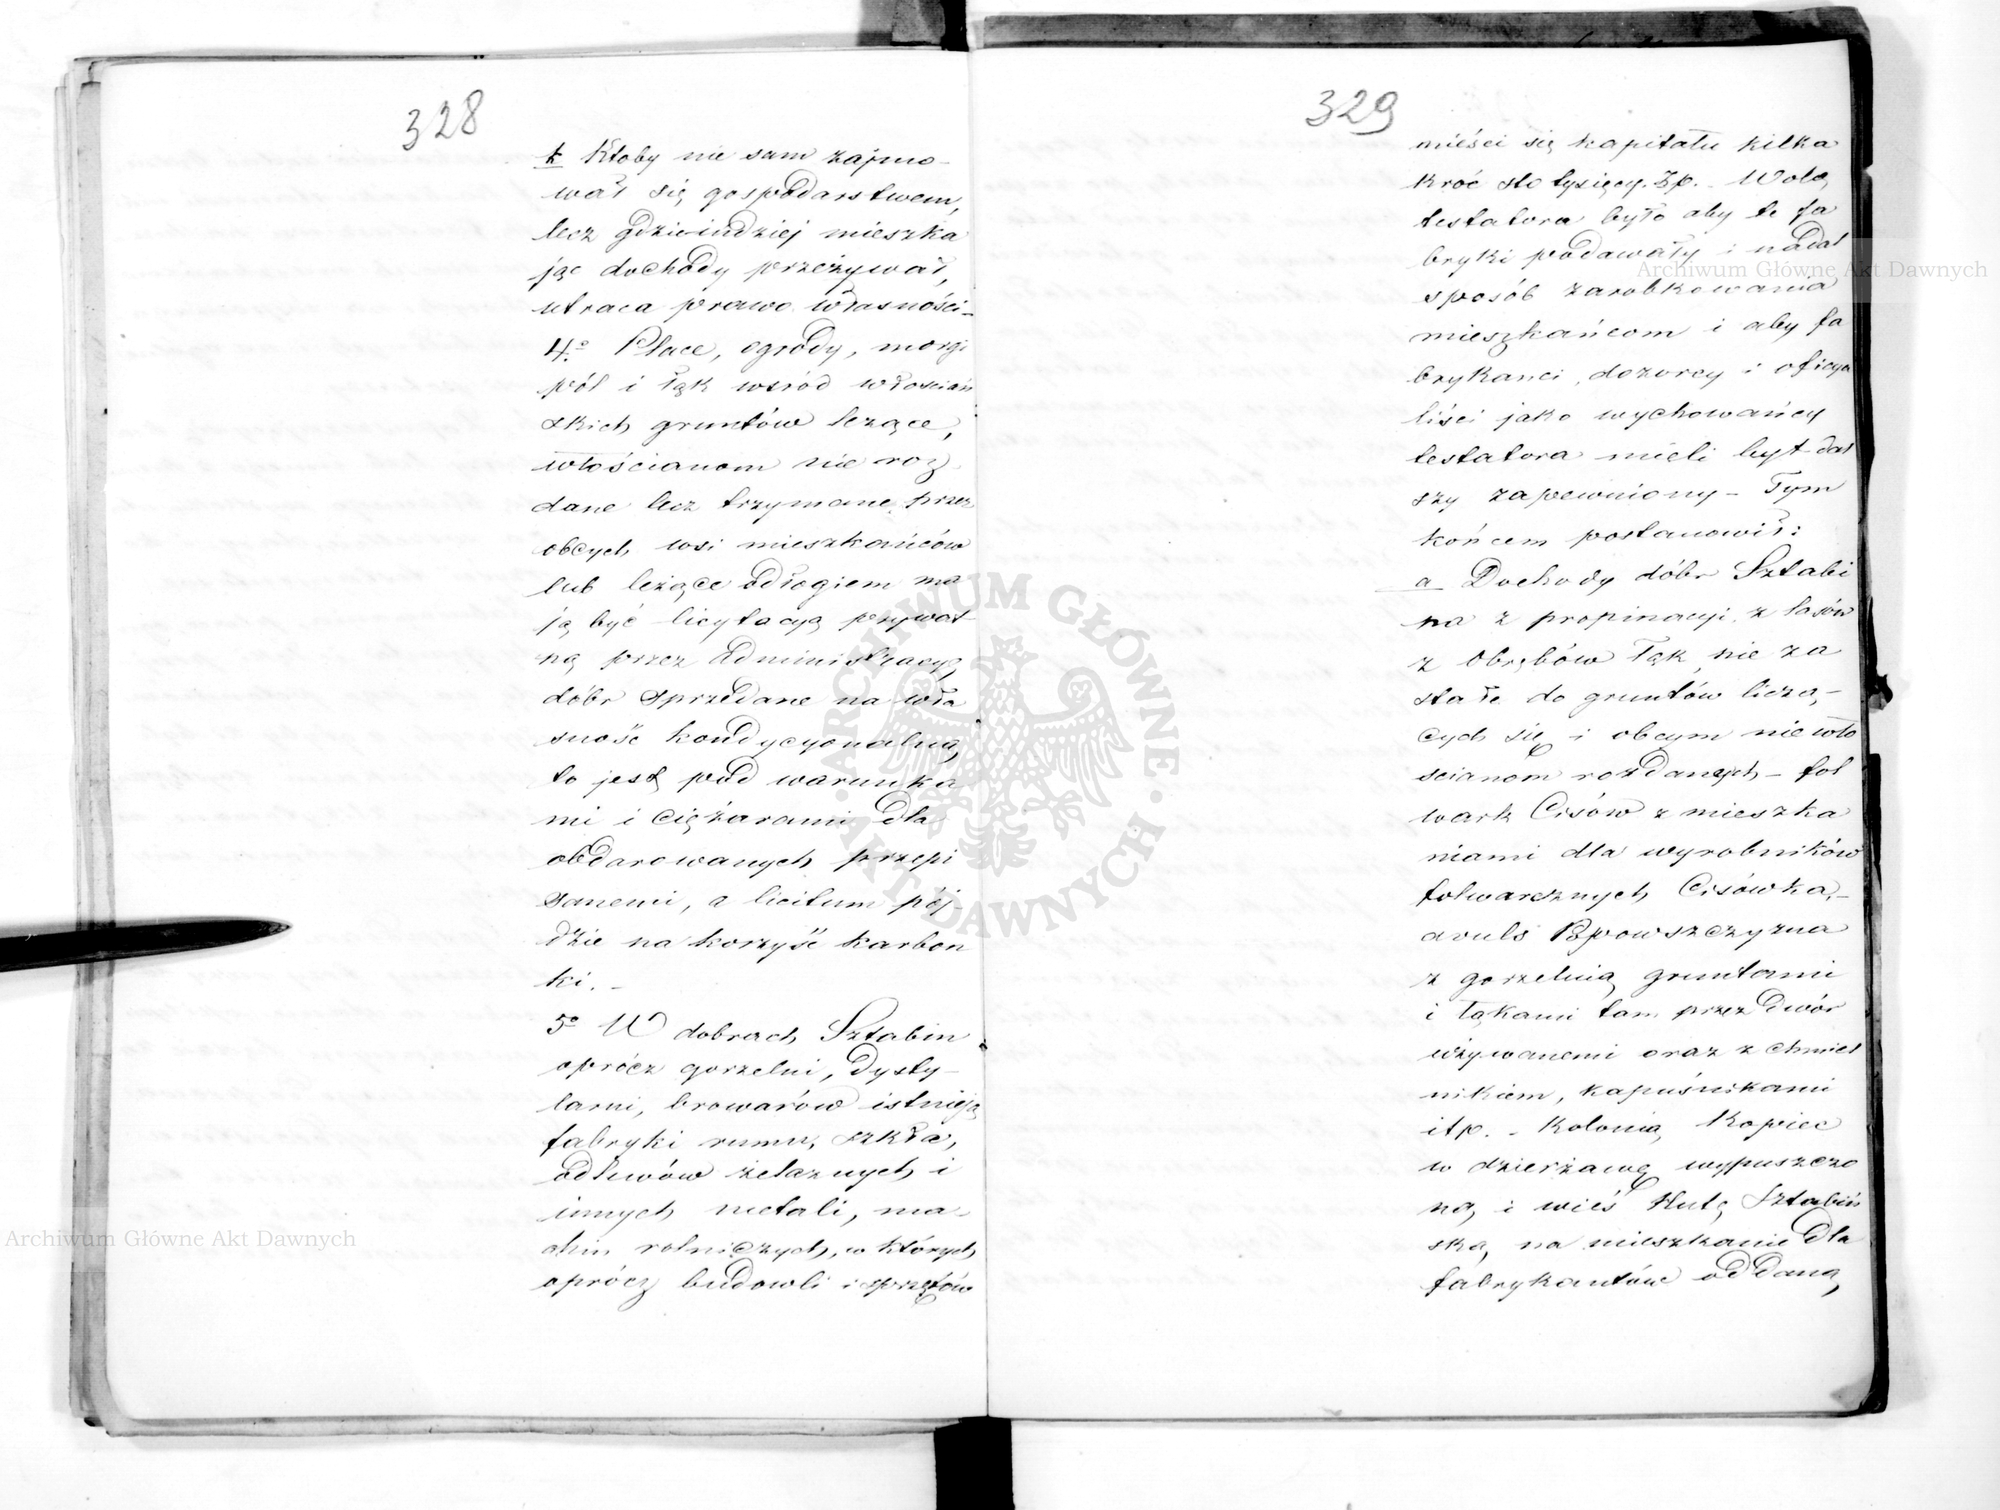 328
k Ktoby nie sam zajmo-
wał się gospodarstwem,
lecz gdzieindziej mieszka
jąc dochody przeżywał,
utraca prawo własności-
4.º Place, ogrody, morgi
pól i łąk wśród włościań
skich gruntów leżące,
włościanom nie roz
dane lecz trzymane przez
obcych wsi mieszkańców
lub leżące odłogiem ma
ją być licytacyą prywat-
ną przez administracyą
dóbr sprzedane na wła
sność kondycyonalną,
to jest pod warunka
mi i ciężarami dla
obdarowanych przepi
sanemi, a licitum pój-
dzie na korzyść karbon
ki. -
5º W dobrach Sztabin
oprócz gorzelni, dysty-
larni, browarów istnieją
fabryki rumu, szkła,
odlewów żelaznych i
innych metali, ma-
chin rolniczych, w których
oprócz budowli i sprzętów
329
mieści się kapitału kilka
kroć sto tysięcy. Zp. - Wolą
testatora było aby te fa
bryki podawały i nadal
sposób zarobkowania
mieszkańcom i aby fa
brykanci, dozorcy i oficya
liści jako wychowańcy
testatora mieli byt dal
szy zapewniony - Tym
końcem postanowił:
a Dochody dóbr Sztabi
na z propinacyi, z lasów
z Obrębów łąk nie za
stałe do gruntów liczą-
cych się i obcym nie wło
scianom rozdanych - fol
wark Cisów z mieszka
niami dla wyrobników
folwarcznych Cisówka,-
avuls Popowszczyzna
z gorzelnią gruntami
i łąkami tam przez dwór
używanemi oraz z chmiel
nikiem, kapuśnikami
itp. - Kolonią Kopiec
w dzierżawę wypuszczo
ną i wieś Hutę Sztabiń
ską, na mieszkanie dla
fabrykantów oddaną,
Archiwum Główne Akt Dawnych
Archiwum Główne Akt Dawnych
ARCHIWUM GŁÓWNE · AKT DAWNYCH ·